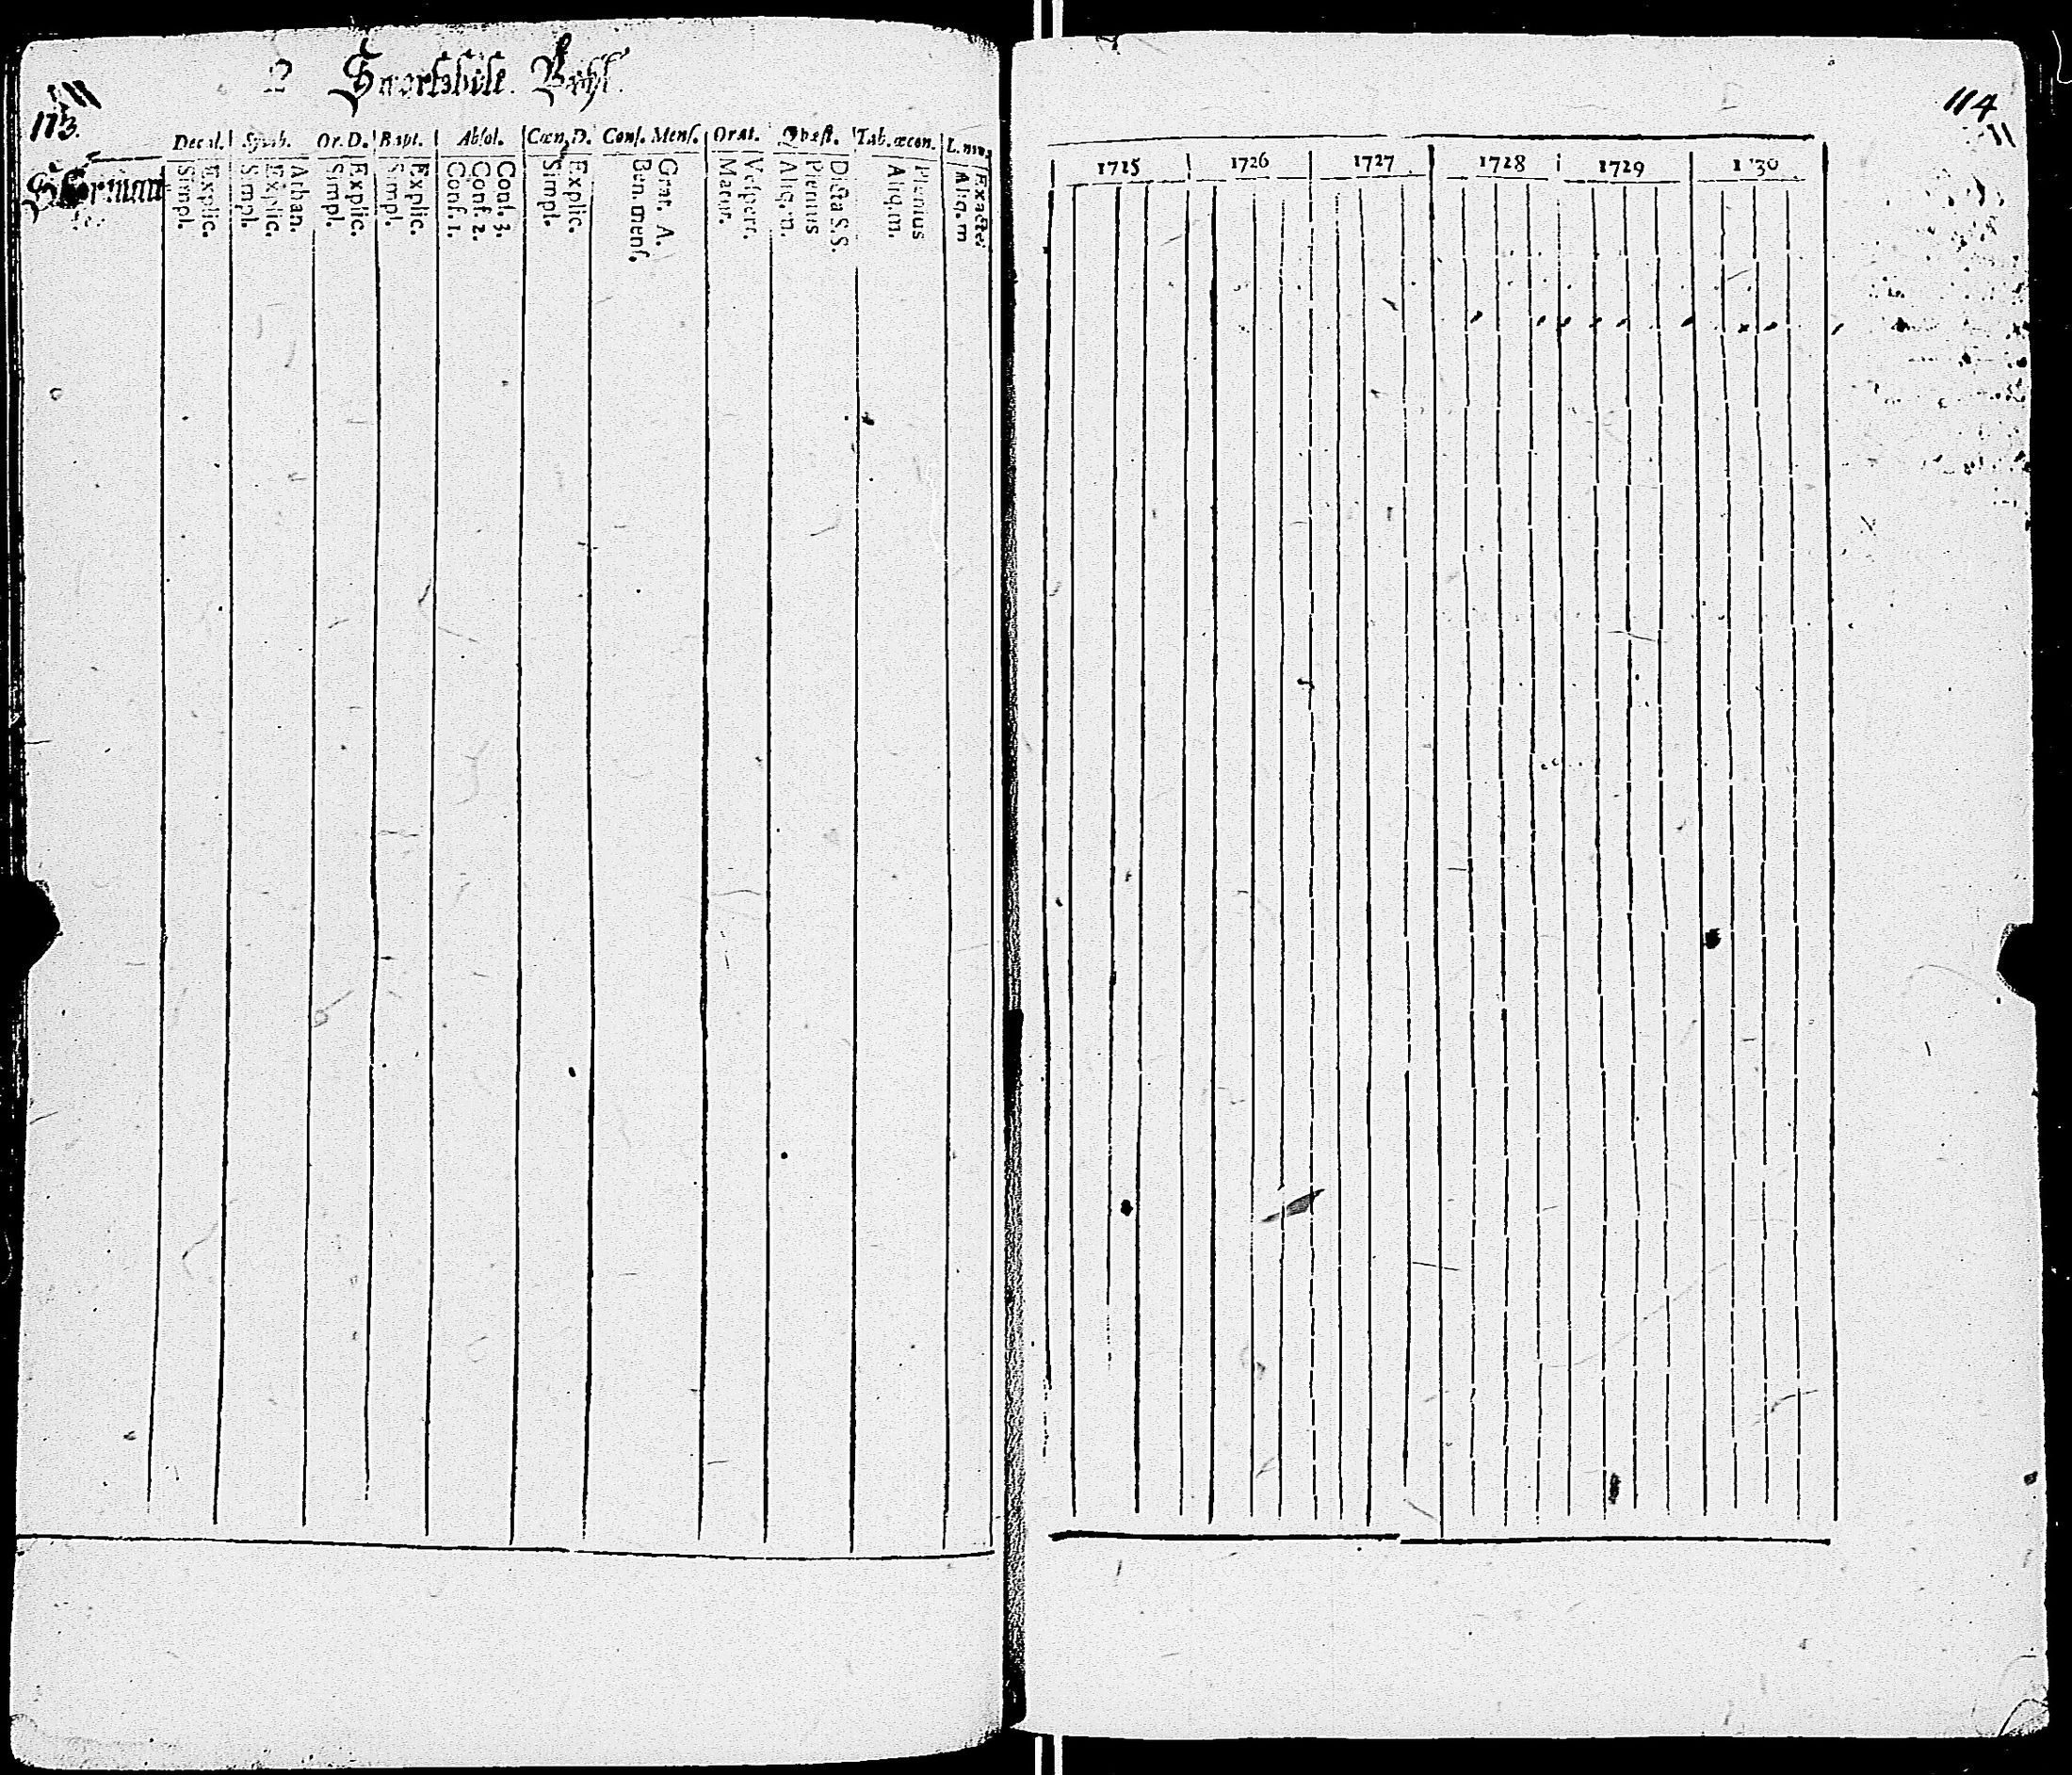 2 Swartsbite.
113.
Decal. Symb. Or. D. Bapt. Absol. Cœn. D. Conf. Mens. Orat. Quæst. Tab. œcon. L. nov.
Simpl. Explic. Simpl. Explic. Athan. Simpl. Explic. Simpl. Explic. Conf. 1. Conf. 2. Conf. 3. Simpl. Explic. Ben. menſ. Grat. A. Matut. Veſpert. Aliq. m. Plenius Dicta S.S. Aliq. m. Plenius Aliq. m Exactei
114
1725 1726 1727 1728 1729 1730